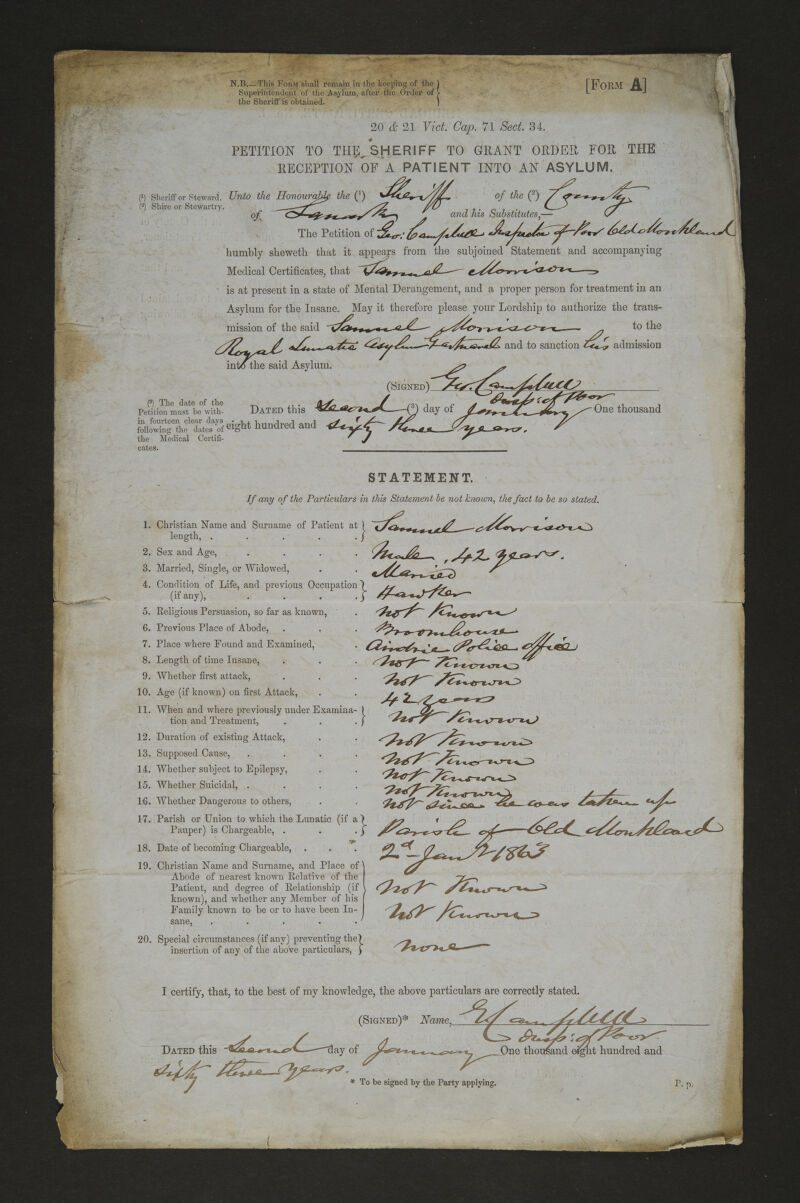 N.B.—This Form shall remain in the keeping of the
Superintendent of the Asylum, after the Order of
the Sheriff is obtained.
[Form A]
20 & 21 Vict. Cap. 71 Sect. 34.
PETITION TO THE SHERIFF TO GRANT ORDER FOR THE
RECEPTION OF A PATIENT INTO AN ASYLUM.
(¹) Sheriff or Steward.
(²) Shire or Stewartry.
Unto the Honourable the (¹) Sheriff of the (²) County
of Lanark and his Substitutes,—
The Petition of Geo: Campbell Inspector of Poor Old Monkland
humbly sheweth that it appears from the subjoined Statement and accompanying
Medical Certificates, that Samuel Morrison
is at present in a state of Mental Derangement, and a proper person for treatment in an
Asylum for the Insane. May it therefore please your Lordship to authorize the trans-
mission of the said Samuel Morrison to the
Royal Lunatic Asylum Gartnavel and to sanction his admission
into the said Asylum.
(Signed) Geo. Campbell
Insp: of Poor
(³) The date of the
Petition must be with-
in fourteen clear days
following the dates of
the Medical Certifi-
cates.
Dated this Second (³) day of January One thousand
eight hundred and sixty three years.
STATEMENT.
If any of the Particulars in this Statement be not known, the fact to be so stated.
1. Christian Name and Surname of Patient at
length, . . . . . Samuel Morrison
2. Sex and Age, . . . . Male, 42 years.
3. Married, Single, or Widowed, . . Married
4. Condition of Life, and previous Occupation
(if any), . . . . Hawker
5. Religious Persuasion, so far as known, . not Known
6. Previous Place of Abode, . . . Broomhouse
7. Place where Found and Examined, . Airdrie Police office
8. Length of time Insane, . . . not Known
9. Whether first attack, . . . not Known
10. Age (if known) on first Attack, . . 42 years
11. When and where previously under Examina-
tion and Treatment, . . . not Known
12. Duration of existing Attack, . . not Known
13. Supposed Cause, . . . . not Known
14. Whether subject to Epilepsy, . . not Known
15. Whether Suicidal, . . . . not Known
16. Whether Dangerous to others, . . not since he was taken up
17. Parish or Union to which the Lunatic (if a
Pauper) is Chargeable, . . . Parish of Old Monkland
18. Date of becoming Chargeable, . . . 2d Jany 1863
19. Christian Name and Surname, and Place of
Abode of nearest known Relative of the
Patient, and degree of Relationship (if not Known
known), and whether any Member of his
Family known to be or to have been In- not Known
sane, . . . . .
20. Special circumstances (if any) preventing the
insertion of any of the above particulars, none
I certify, that, to the best of my knowledge, the above particulars are correctly stated.
(Signed)* Name, G Campbell
Insp: of Poor
Dated this Second day of January One thousand eight hundred and
sixty three years.
* To be signed by the Party applying.
P. p.